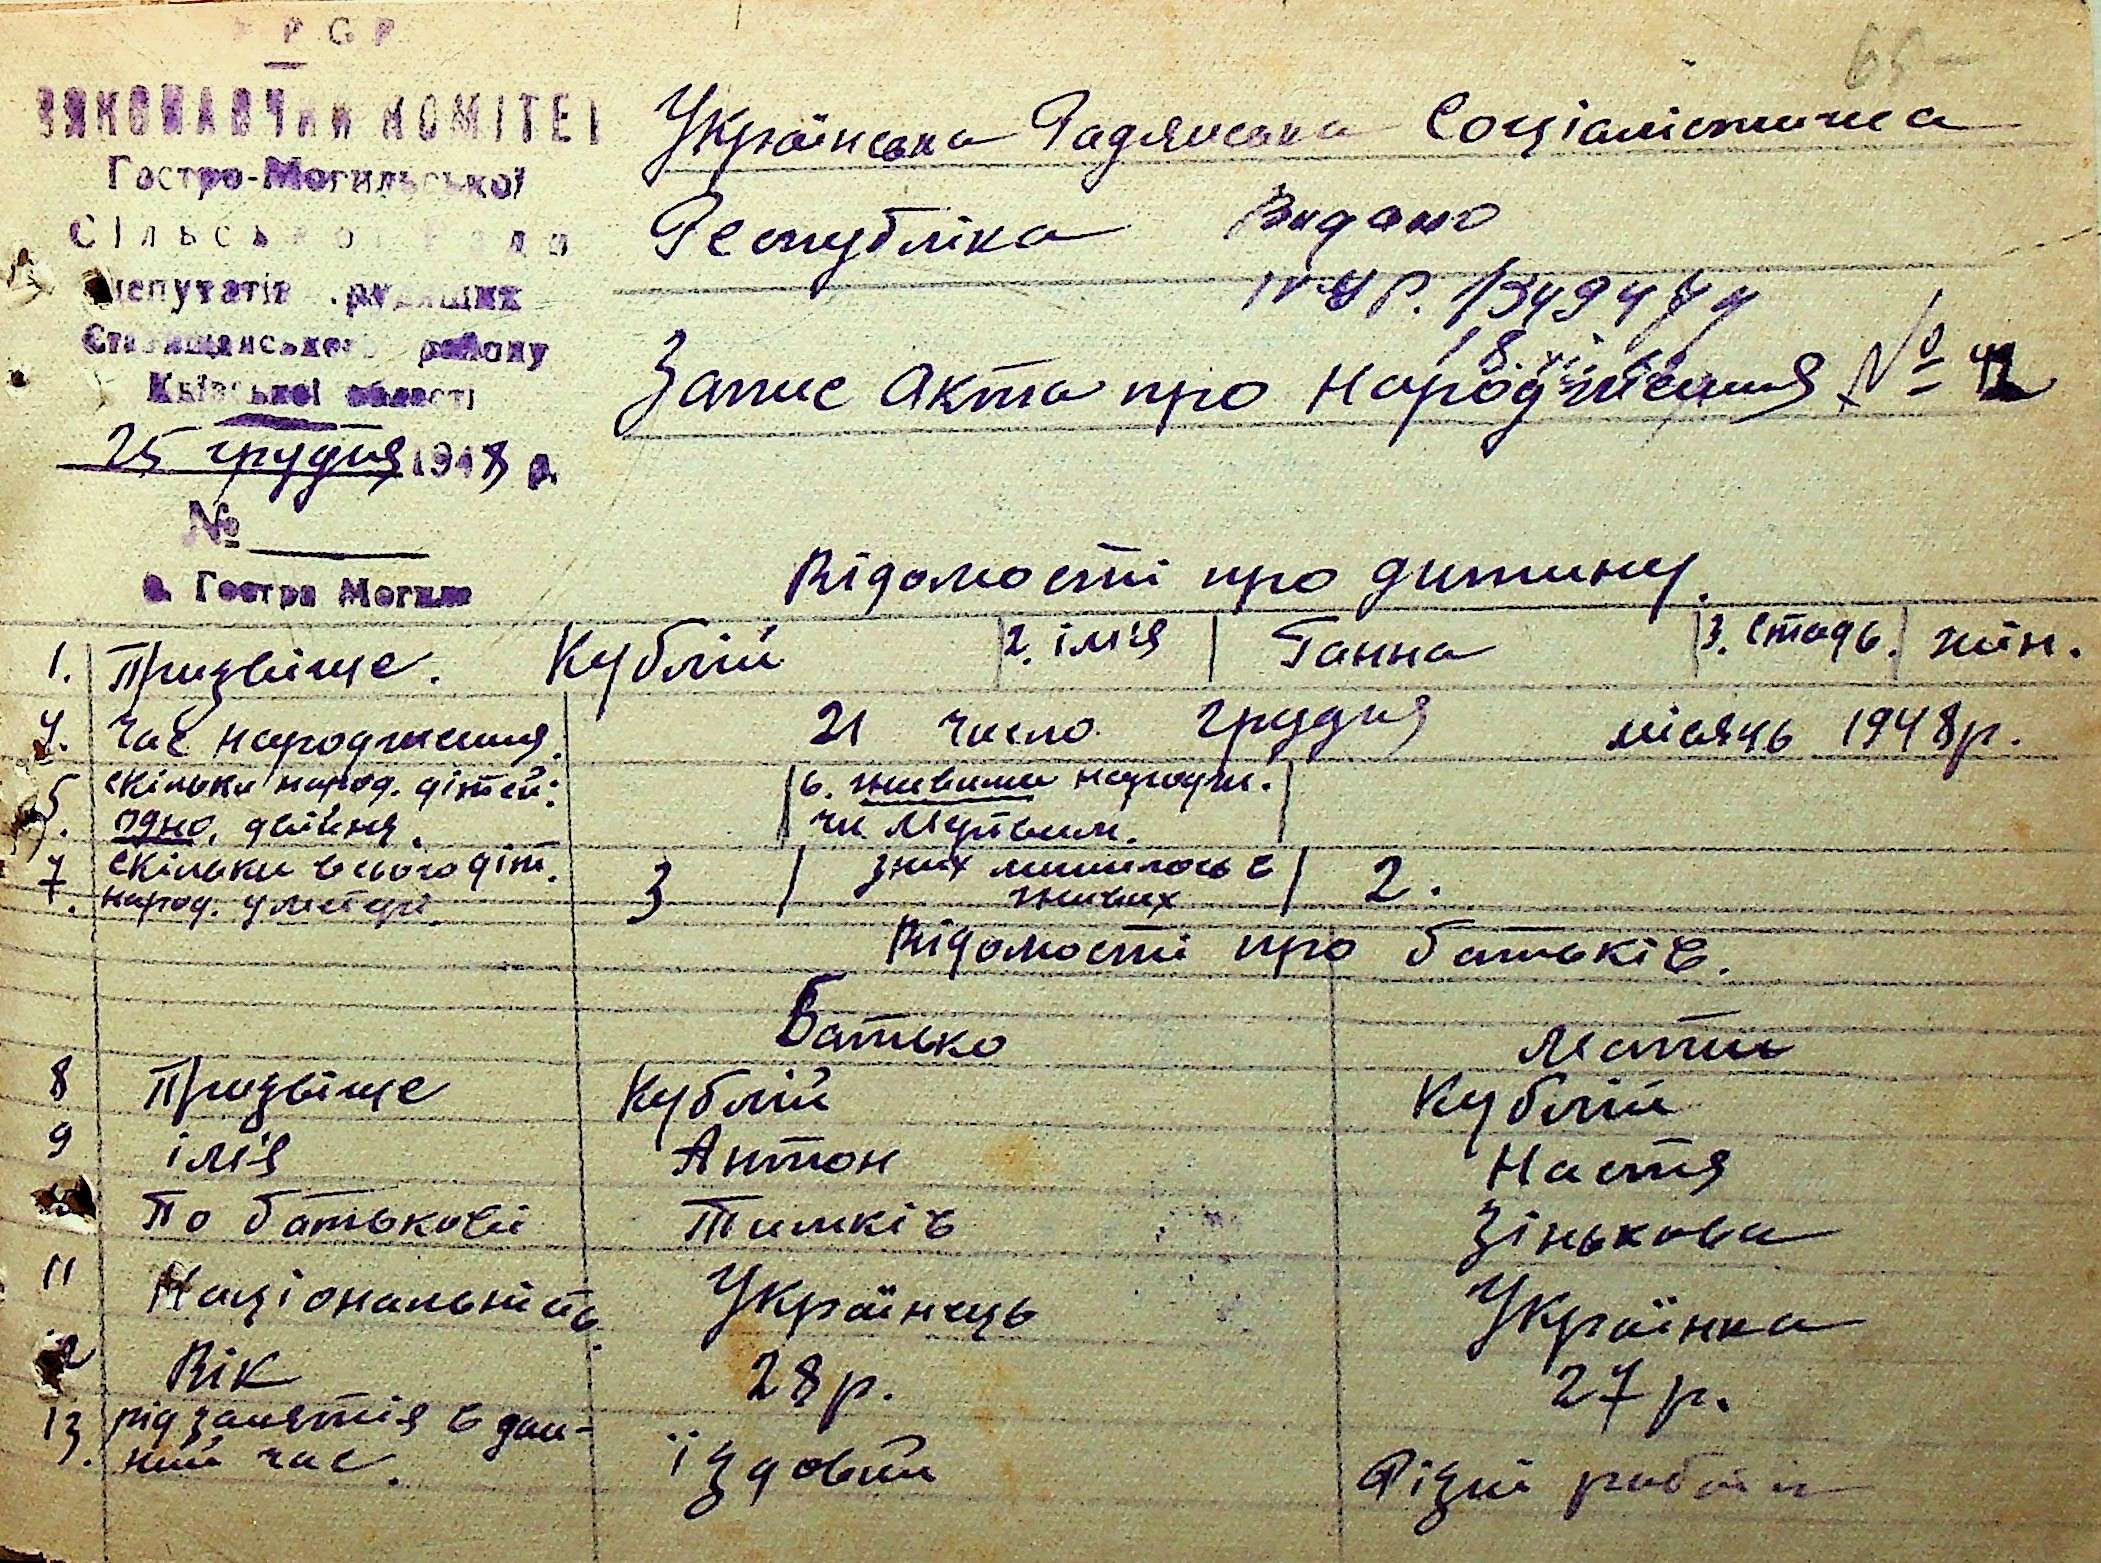 УРСР
ВИКОНАВЧИЙ КОМІТЕТ
Гостро-Могильської
Сільської Ради
депутатів трудящих
Ставищанського району
Київської області
25 грудня 1948 р.
№
с. Гостра Могила
65
Українська Радянська Соціалістична
Республіка Видано
Запис Акта про народження № 42
Відомості про дитину.
1. Призвіще. Кублій 2. ім'я Ганна 3. стать. жін.
4. Час народження. 21 число грудня місяць 1948р.
5. скільки народ. дітей: одно, двійня. 6. живими народж. чи мертвим.
7. скільки всього діт. народ. у матері. 3 з них лишилось в живих 2.
Відомості про батьків.
Батько Мати
8 Призвіще Кублій Кублій
9 ім'я Антон Настя
По батькові Тимків Зінькова
11 Національність. Українець Українка
12 Вік 28р. 27р.
13. рід заняття в дан-
ний час. їздовий Різні роботи